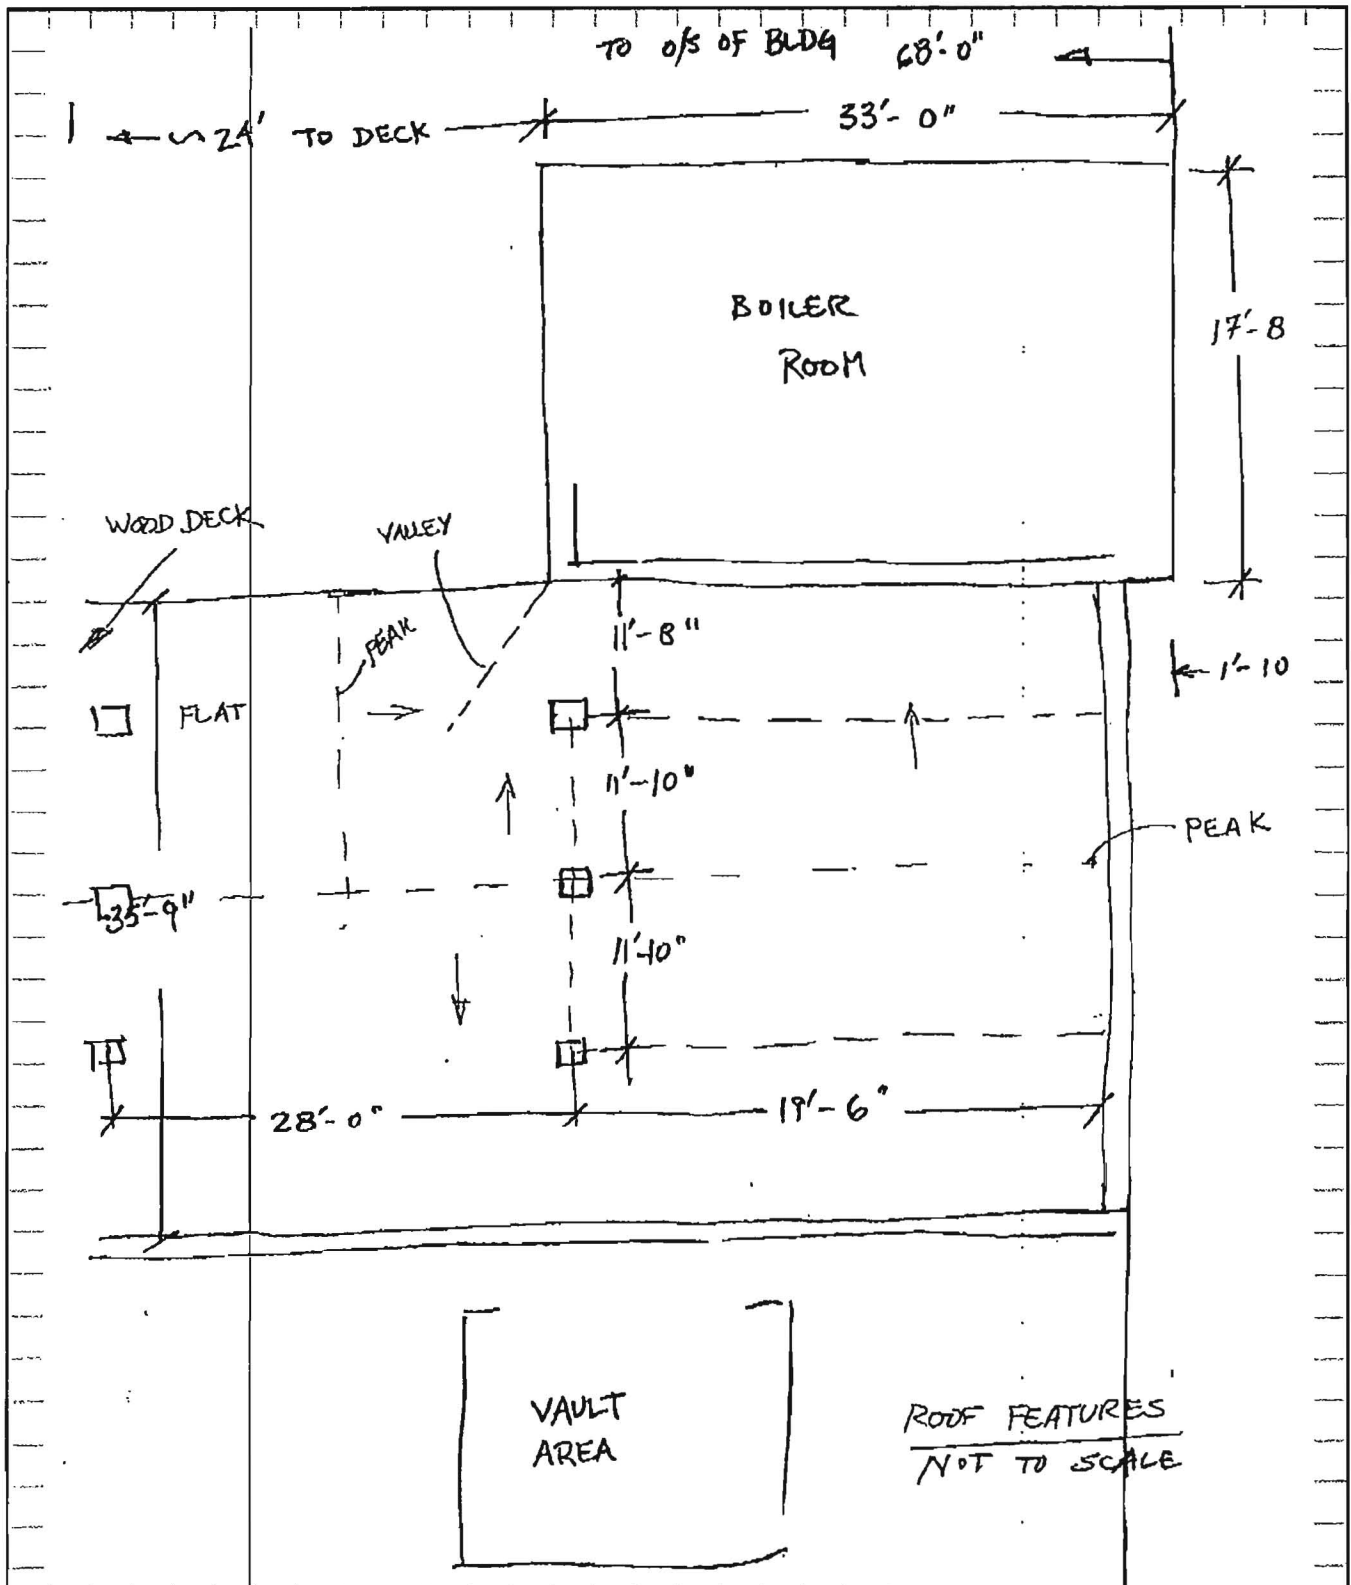 TO O/S OF BLDG 68'-0"
~ 24' TO DECK
33'-0"
BOILER
ROOM
17'-8
WOOD DECK
VALLEY
PEAK
11'-8"
1'-10
FLAT
11'-10"
PEAK
35'-9"
11'-10"
28'-0"
19'-6"
VAULT
AREA
ROOF FEATURES
NOT TO SCALE